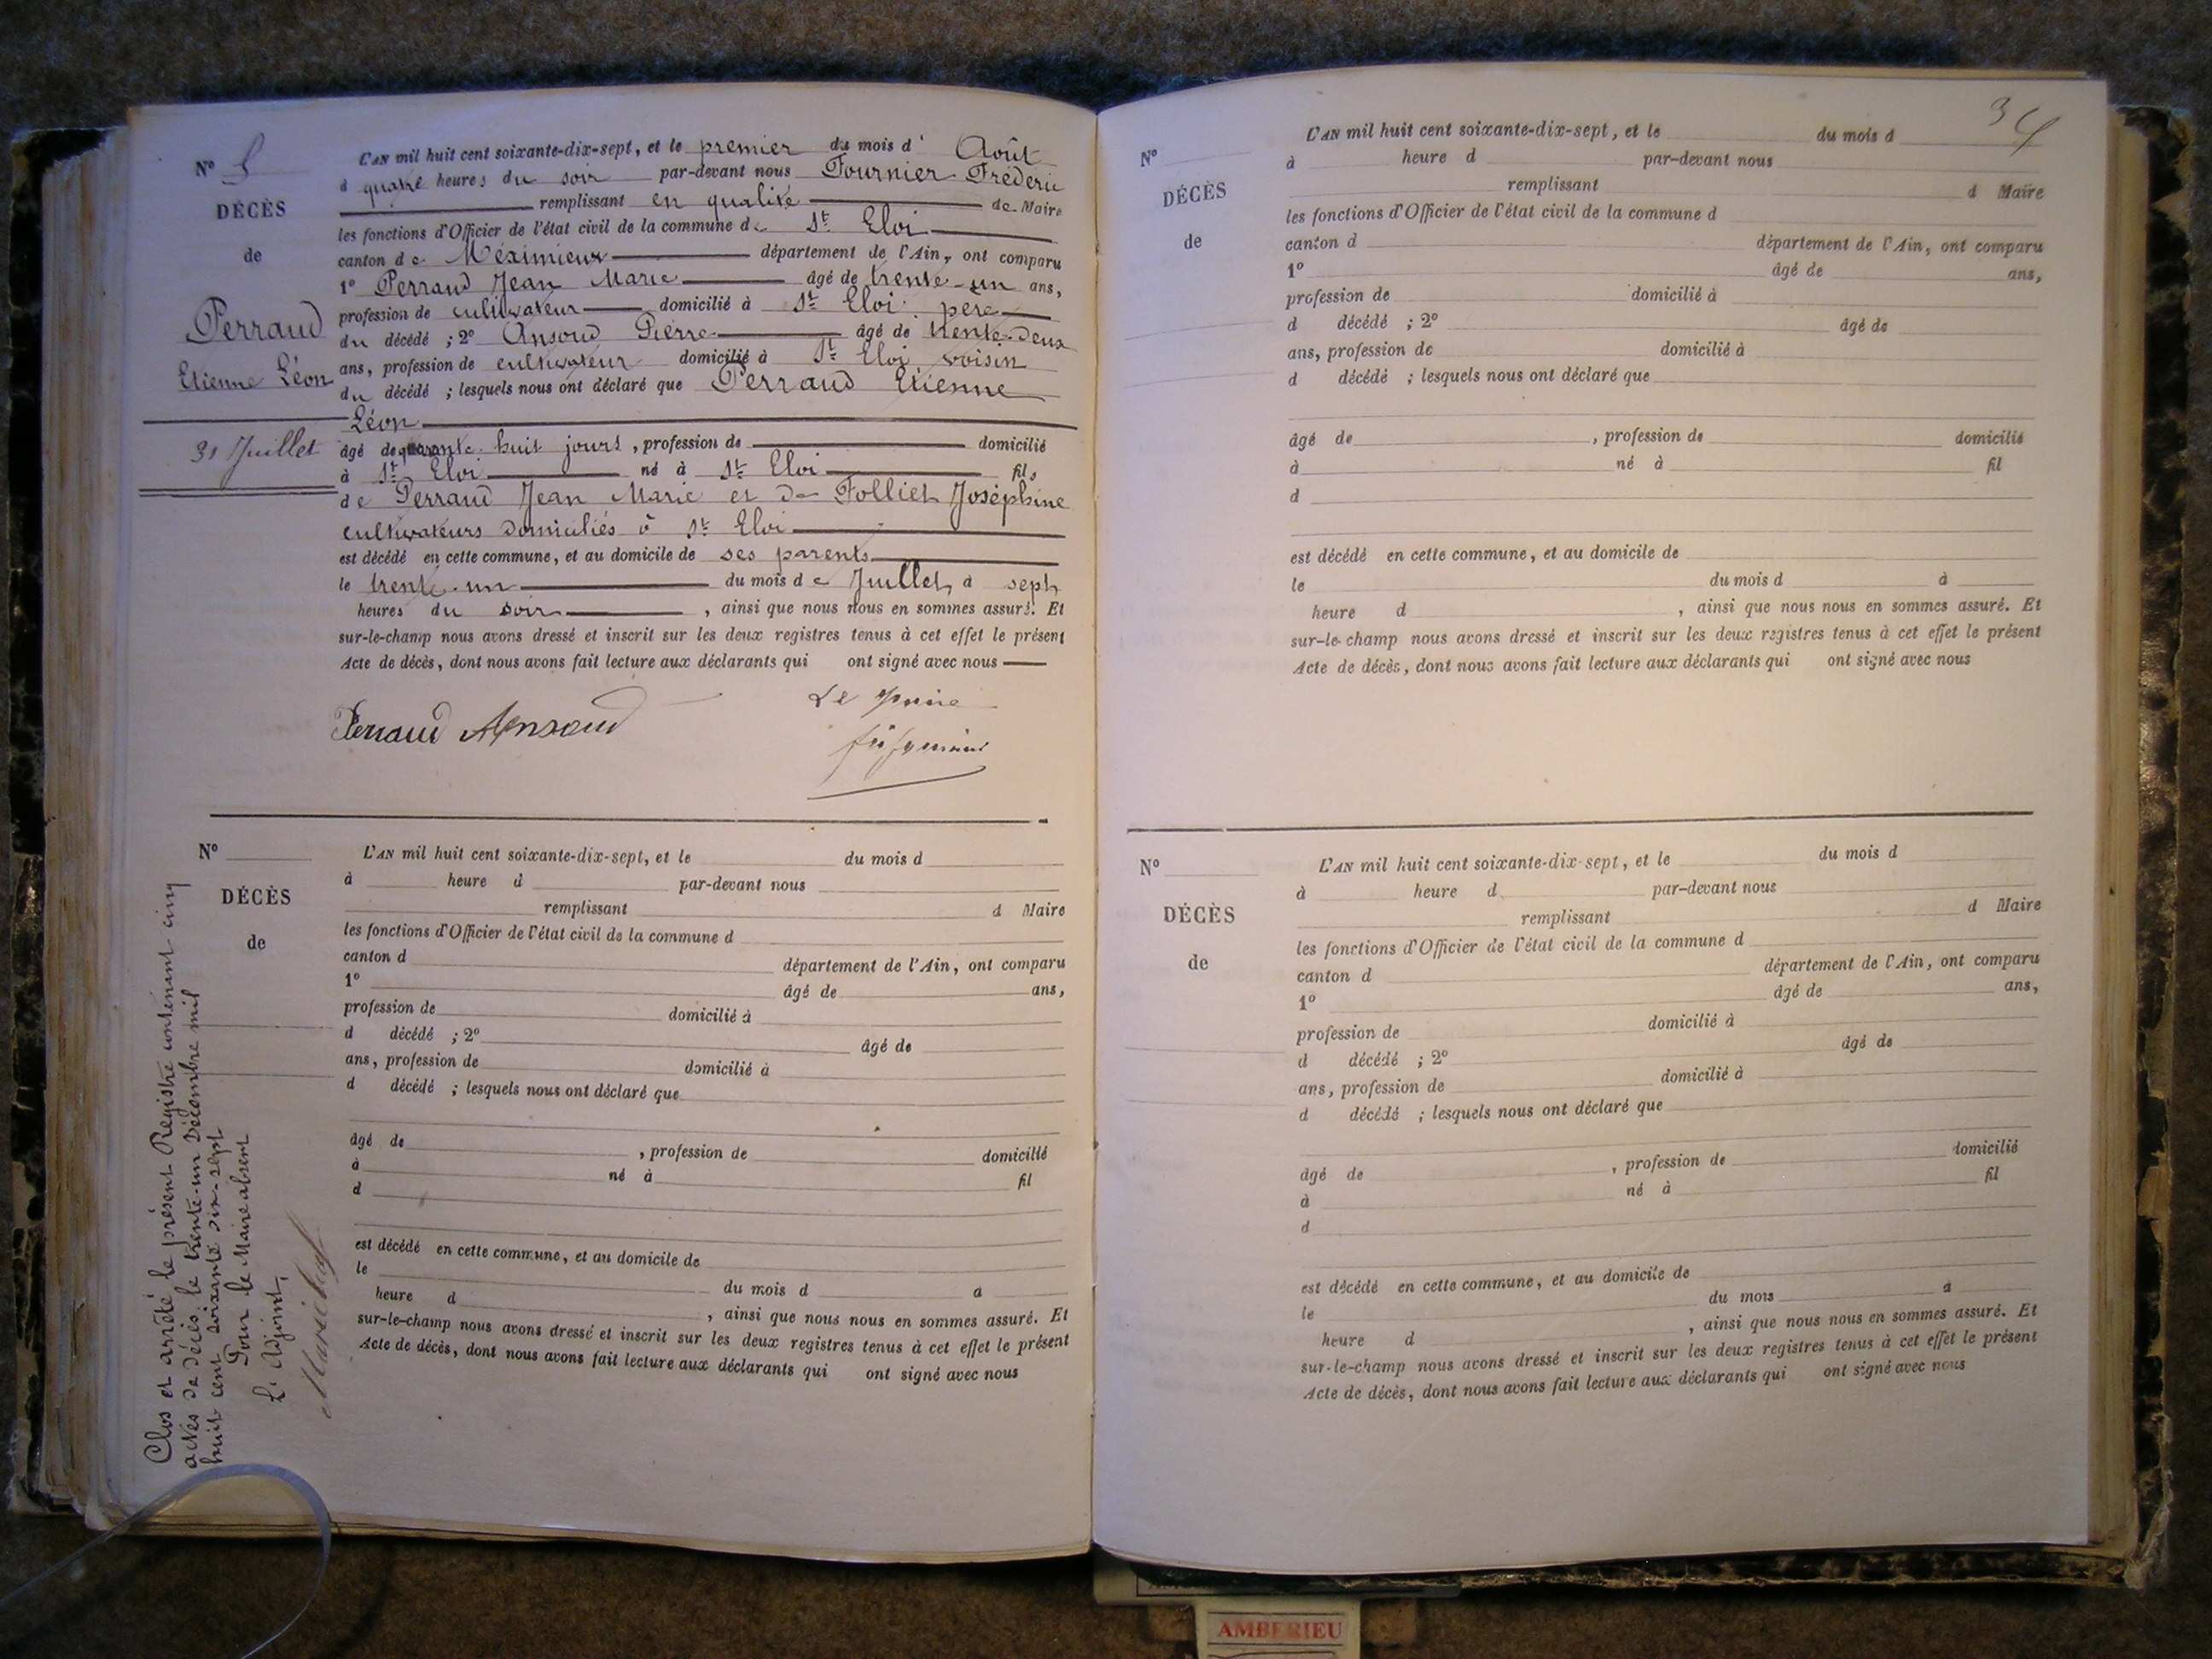 Nº 5
DÉCÈS
de
Perraud
Etienne Léon
31 Juillet
L'AN mil huit cent soixante-dix-sept, et le premier du mois d' Août
à quatre heures du soir par-devant nous Fournier Frédéric
remplissant en qualité de Maire
les fonctions d'Officier de l'état civil de la commune de St Eloi
canton de Méximieux département de l'Ain, ont comparu
1º Perraud Jean Marie âgé de trente-un ans,
profession de cultivateur domicilié à St Eloi père
du décédé ; 2º Ansoud Pierre âgé de trente-deux
ans, profession de cultivateur domicilié à St Eloi voisin
du décédé ; lesquels nous ont déclaré que Perraud Etienne
Léon
âgé de quarante huit jours, profession de domicilié
à St Eloi né à St Eloi fils
de Perraud Jean Marie et de Folliet Joséphine
cultivateurs domiciliés à St Eloi
est décédé en cette commune, et au domicile de ses parents
le trente-un du mois de Juillet, à sept
heures du soir, ainsi que nous nous en sommes assuré. Et
sur-le-champ nous avons dressé et inscrit sur les deux registres tenus à cet effet le présent
Acte de décès, dont nous avons fait lecture aux déclarants qui ont signé avec nous
Perraud Ansoud
Le Maire
Nº
DÉCÈS
de
L'AN mil huit cent soixante-dix-sept, et le du mois d
à heure d par-devant nous
remplissant d Maire
les fonctions d'Officier de l'état civil de la commune d
canton d département de l'Ain, ont comparu
1º âgé de ans,
profession de domicilié à
d décédé ; 2º âgé de
ans, profession de domicilié à
d décédé ; lesquels nous ont déclaré que
âgé de , profession de domicilié
à né à fil
d
est décédé en cette commune, et au domicile de
le du mois d à
heure d , ainsi que nous nous en sommes assuré. Et
sur-le-champ nous avons dressé et inscrit sur les deux registres tenus à cet effet le présent
Acte de décès, dont nous avons fait lecture aux déclarants qui ont signé avec nous
Clos et arrêté le présent Registre contenant cinq
actes de décès le trente-un Décembre mil
huit cent soixante dix-sept
Pour le Maire absent
L'Adjoint,
34
Nº
DÉCÈS
de
L'AN mil huit cent soixante-dix-sept, et le du mois d
à heure d par-devant nous
remplissant d Maire
les fonctions d'Officier de l'état civil de la commune d
canton d département de l'Ain, ont comparu
1º âgé de ans,
profession de domicilié à
d décédé ; 2º âgé de
ans, profession de domicilié à
d décédé ; lesquels nous ont déclaré que
âgé de , profession de domicilié
à né à fil
d
est décédé en cette commune, et au domicile de
le du mois d à
heure d , ainsi que nous nous en sommes assuré. Et
sur-le-champ nous avons dressé et inscrit sur les deux registres tenus à cet effet le présent
Acte de décès, dont nous avons fait lecture aux déclarants qui ont signé avec nous
Nº
DÉCÈS
de
L'AN mil huit cent soixante-dix-sept, et le du mois d
à heure d par-devant nous
remplissant d Maire
les fonctions d'Officier de l'état civil de la commune d
canton d département de l'Ain, ont comparu
1º âgé de ans,
profession de domicilié à
d décédé ; 2º âgé de
ans, profession de domicilié à
d décédé ; lesquels nous ont déclaré que
âgé de , profession de domicilié
à né à fil
d
est décédé en cette commune, et au domicile de
le du mois à
heure d , ainsi que nous nous en sommes assuré. Et
sur-le-champ nous avons dressé et inscrit sur les deux registres tenus à cet effet le présent
Acte de décès, dont nous avons fait lecture aux déclarants qui ont signé avec nous
AMBERIEU